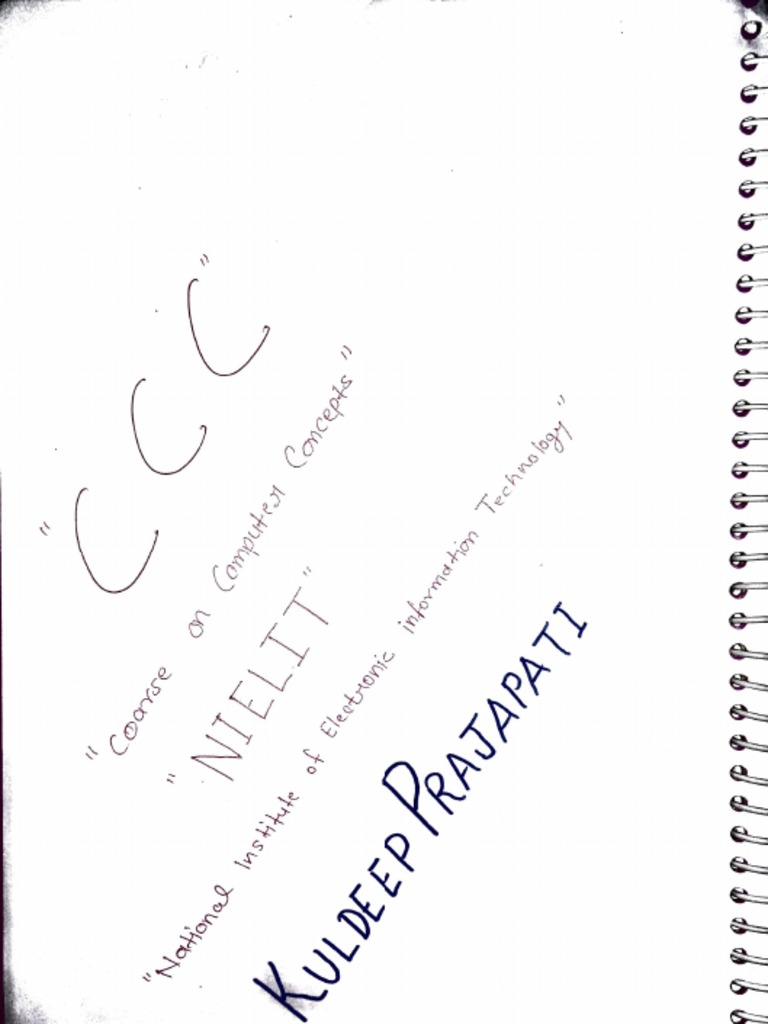 "C C C"
"Coarse on Computer Concepts"
"NIELIT"
"National Institute of Electronic information Technology"
KULDEEP PRAJAPATI